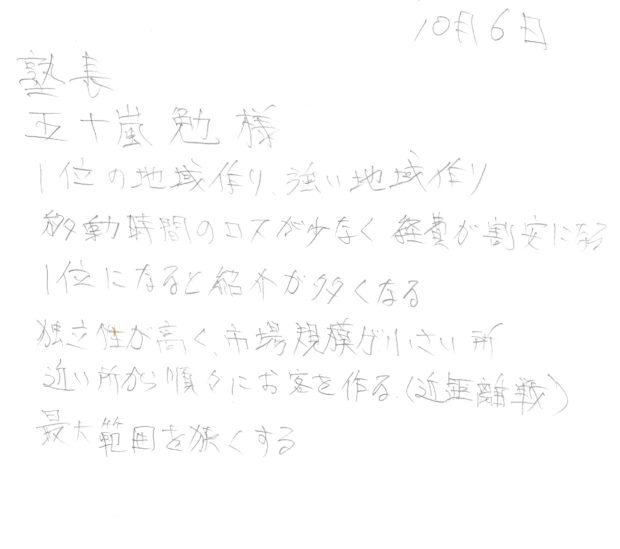 10月6日
塾長
五十嵐勉様
1位の地域作り、強い地域作り
移動時間のロスが少なく経費が割安になる
1位になると紹介が多くなる
独立性が高く、市場規模が小さい所
近い所から順々にお客を作る、(近距離戦)
最大範囲を狭くする